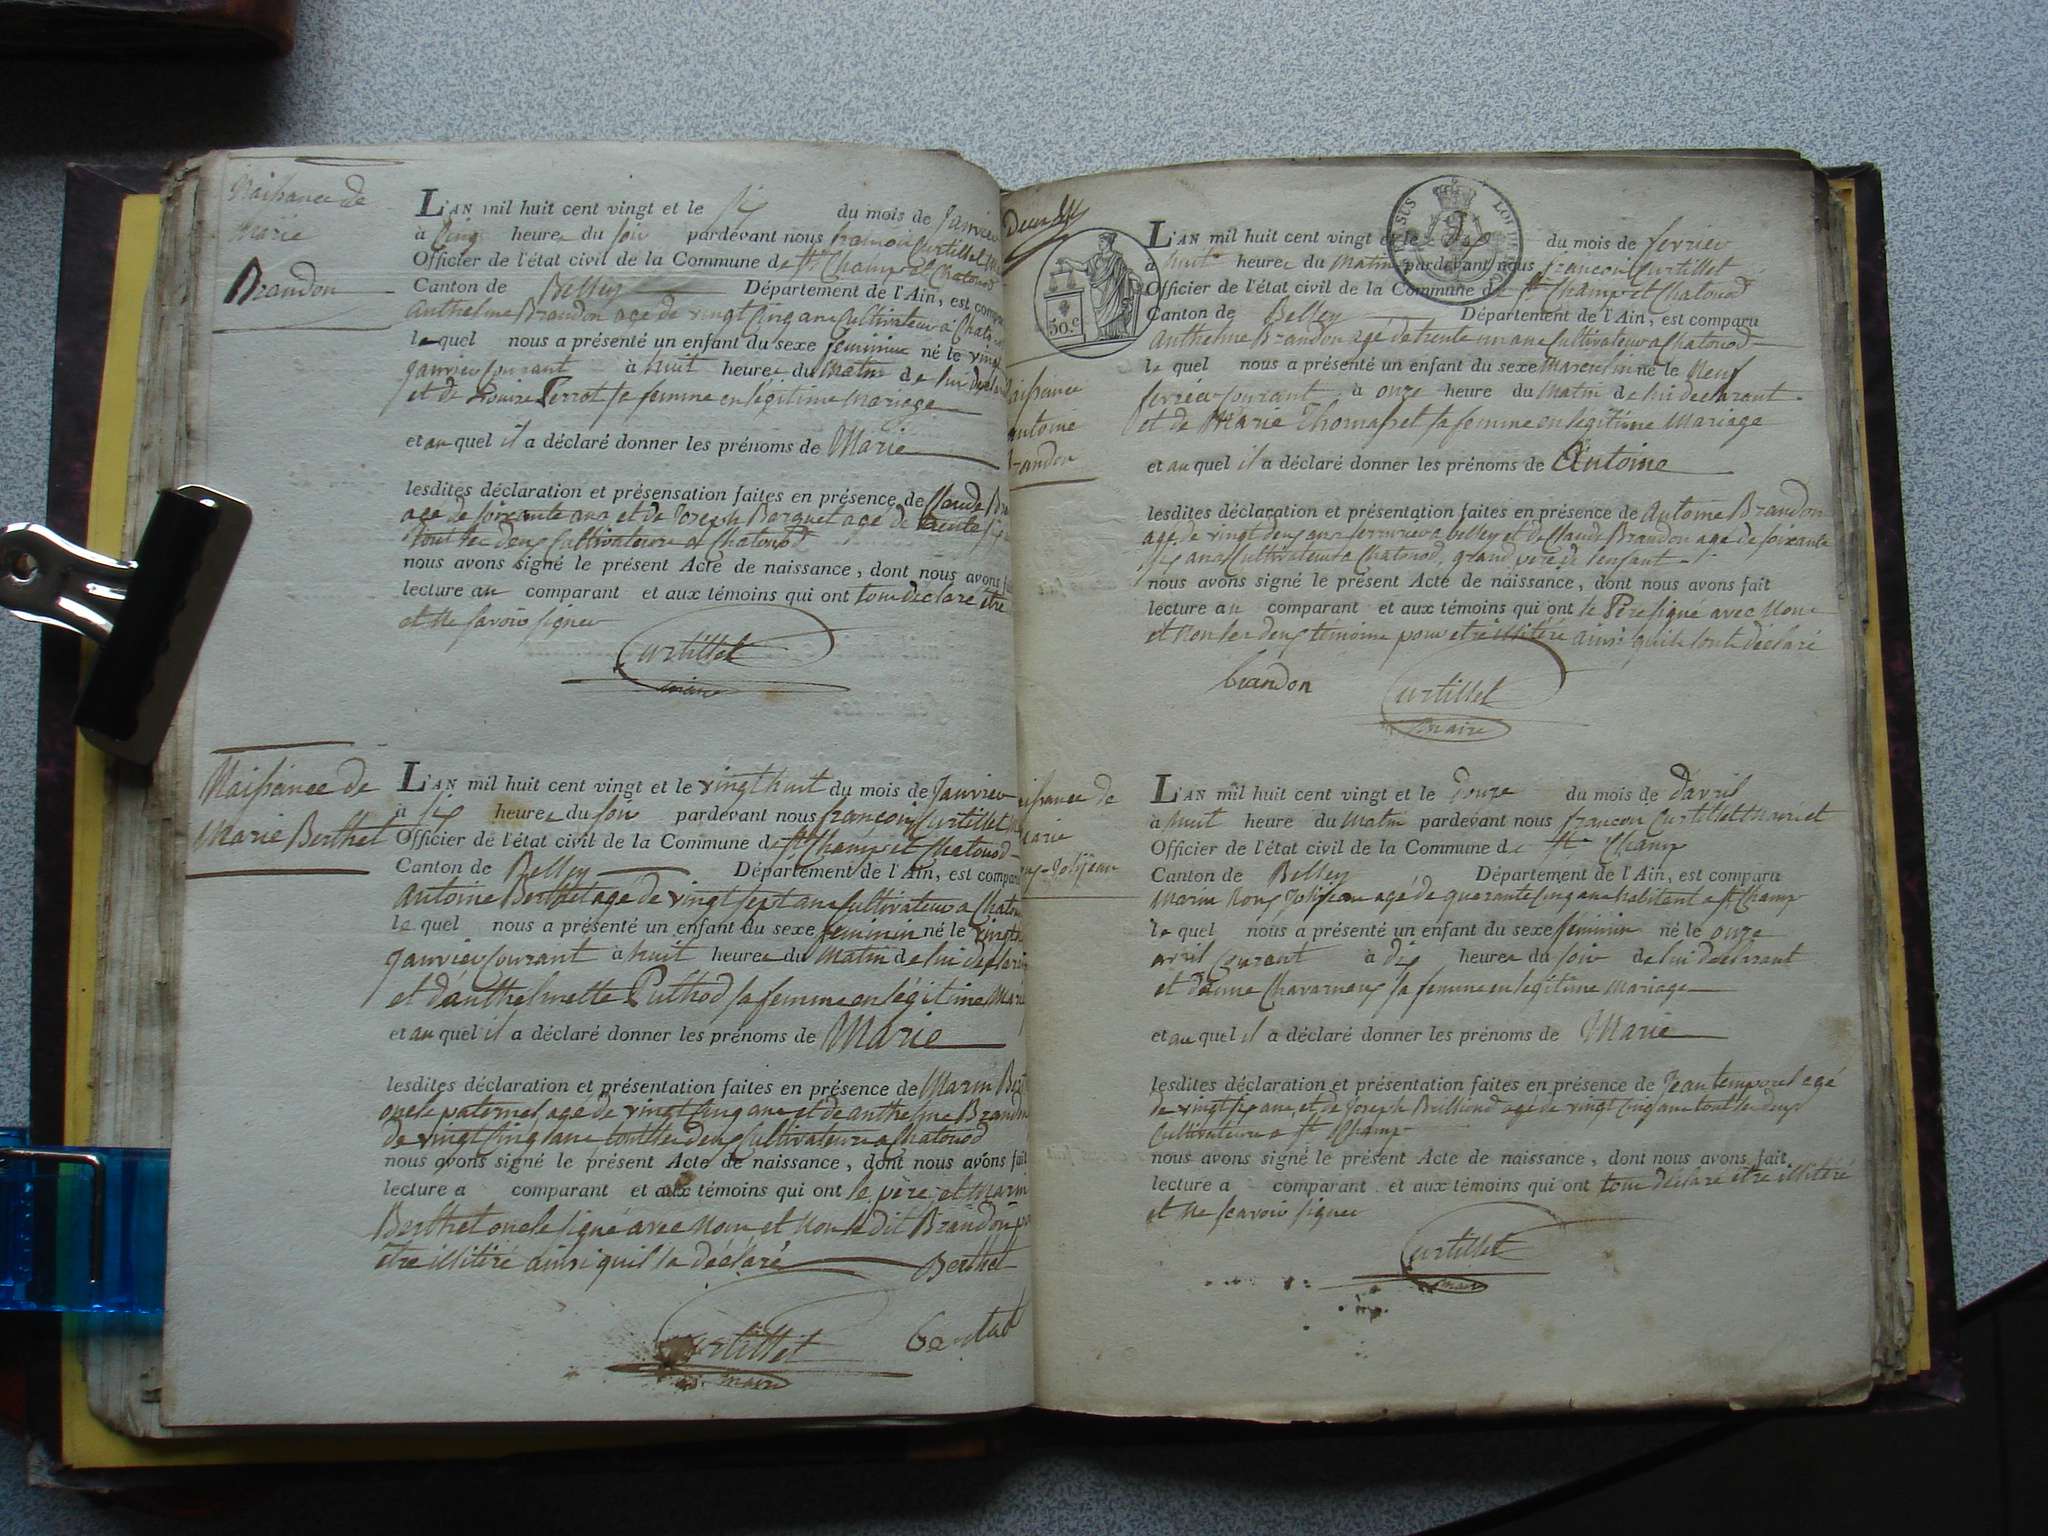 Naissance de
Marie
Brandon
L'AN mil huit cent vingt et le six du mois de Janvier
à Cinq heures du soir pardevant nous francois Curtillet
Officier de l'état civil de la Commune de St Champ et Chatonod
Canton de Belley Département de l'Ain, est compa
Anthelme Brandon agé de vingt cinq ans Cultivateur a Chato
le quel nous a présenté un enfant du sexe feminin né le vingt
janvier Courant à huit heures du matin de lui declara
et de Perrot sa femme en légitime Mariage
et au quel il a déclaré donner les prénoms de Marie
lesdites déclaration et présensation faites en présence de Claude Bra
age de soixante ans et de Joseph Berquet age de trente
tout les deux Cultivateurs a Chatonod
nous avons signé le présent Acte de naissance, dont nous avons fai
lecture au comparant et aux témoins qui ont tous déclaré être
et ne savoir signer
Curtillet
maire
Naissance de
Marie Berthet
L'AN mil huit cent vingt et le vingt huit du mois de Janvier
à six heures du soir pardevant nous françois Curtillet
Officier de l'état civil de la Commune de St Champ et Chatonod
Canton de Belley Département de l'Ain, est compar
Antoine Berthet agé de vingt sept ans Cultivateur a Chaton
le quel nous a présenté un enfant du sexe feminin né le vingt
janvier Courant à huit heures du matin de lui déclaran
et d'anthelmette Puthod sa femme en légitime Mari
et au quel il a déclaré donner les prénoms de Marie
lesdites déclaration et présentation faites en présence de Marin Bert
oncle paternel age de vingt cinq ans et de anthelme Brandon
de vingt cinq ans tout les deux Cultivateurs a Chatonod
nous avons signé le présent Acte de naissance, dont nous avons fait
lecture a comparant et aux témoins qui ont le père et Marin
Berthet oncle signé avec Nous et Non le dit Brandon po
être illitéré ainsi quil la déclaré Berthet
Curtillet
maire
50.c
Naissance
antoine
Brandon
L'AN mil huit cent vingt et le dix du mois de fevrier
à huit heures du Matin pardevant nous francois Curtillet
Officier de l'état civil de la Commune de St Champ et Chatonod
Canton de Belley Département de l'Ain, est comparu
Anthelme Brandon agé de trente un ans Cultivateur a Chatonod
le quel nous a présenté un enfant du sexe Masculin né le Neuf
fevrier courant à onze heure du Matin de lui declarant
et de Marie Thomasset sa femme en légitime Mariage
et au quel il a déclaré donner les prénoms de Antoine
lesdites déclaration et présentation faites en présence de Antoine Brandon
age de vingt deux ans serrurier a belley et de Claude Brandon age de soixante
six ans Cultivateur a Chatonod, grand père de lenfant
nous avons signé le présent Acte de naissance, dont nous avons fait
lecture au comparant et aux témoins qui ont le Père signé avec Nous
et Non les deux témoins pour etre illitéré ainsi quils lont déclaré
brandon Curtillet
maire
L'AN mil huit cent vingt et le Douze du mois de d'avril
à huit heure du Matin pardevant nous francois Curtillet Maire et
Officier de l'état civil de la Commune de St Champ
Canton de Belley Département de l'Ain, est comparu
Marin Roux Jolijean agé de quarante cinq ans habitent a St Champ
le quel nous a présenté un enfant du sexe féminin né le onze
avril Courant à dix heures du soir de lui declarant
et sa femme en légitime Mariage
et au quel il a déclaré donner les prénoms de Marie
lesdites déclaration et présentation faites en présence de Jean temporel agé
de vingt six ans, et de Joseph agé de vingt cinq ans tout les deux
Cultivateurs a St Champ
nous avons signé le présent Acte de naissance, dont nous avons fait
lecture a comparant et aux témoins qui ont tous déclaré être illitéré
et ne scavoir signer
Curtillet
maire